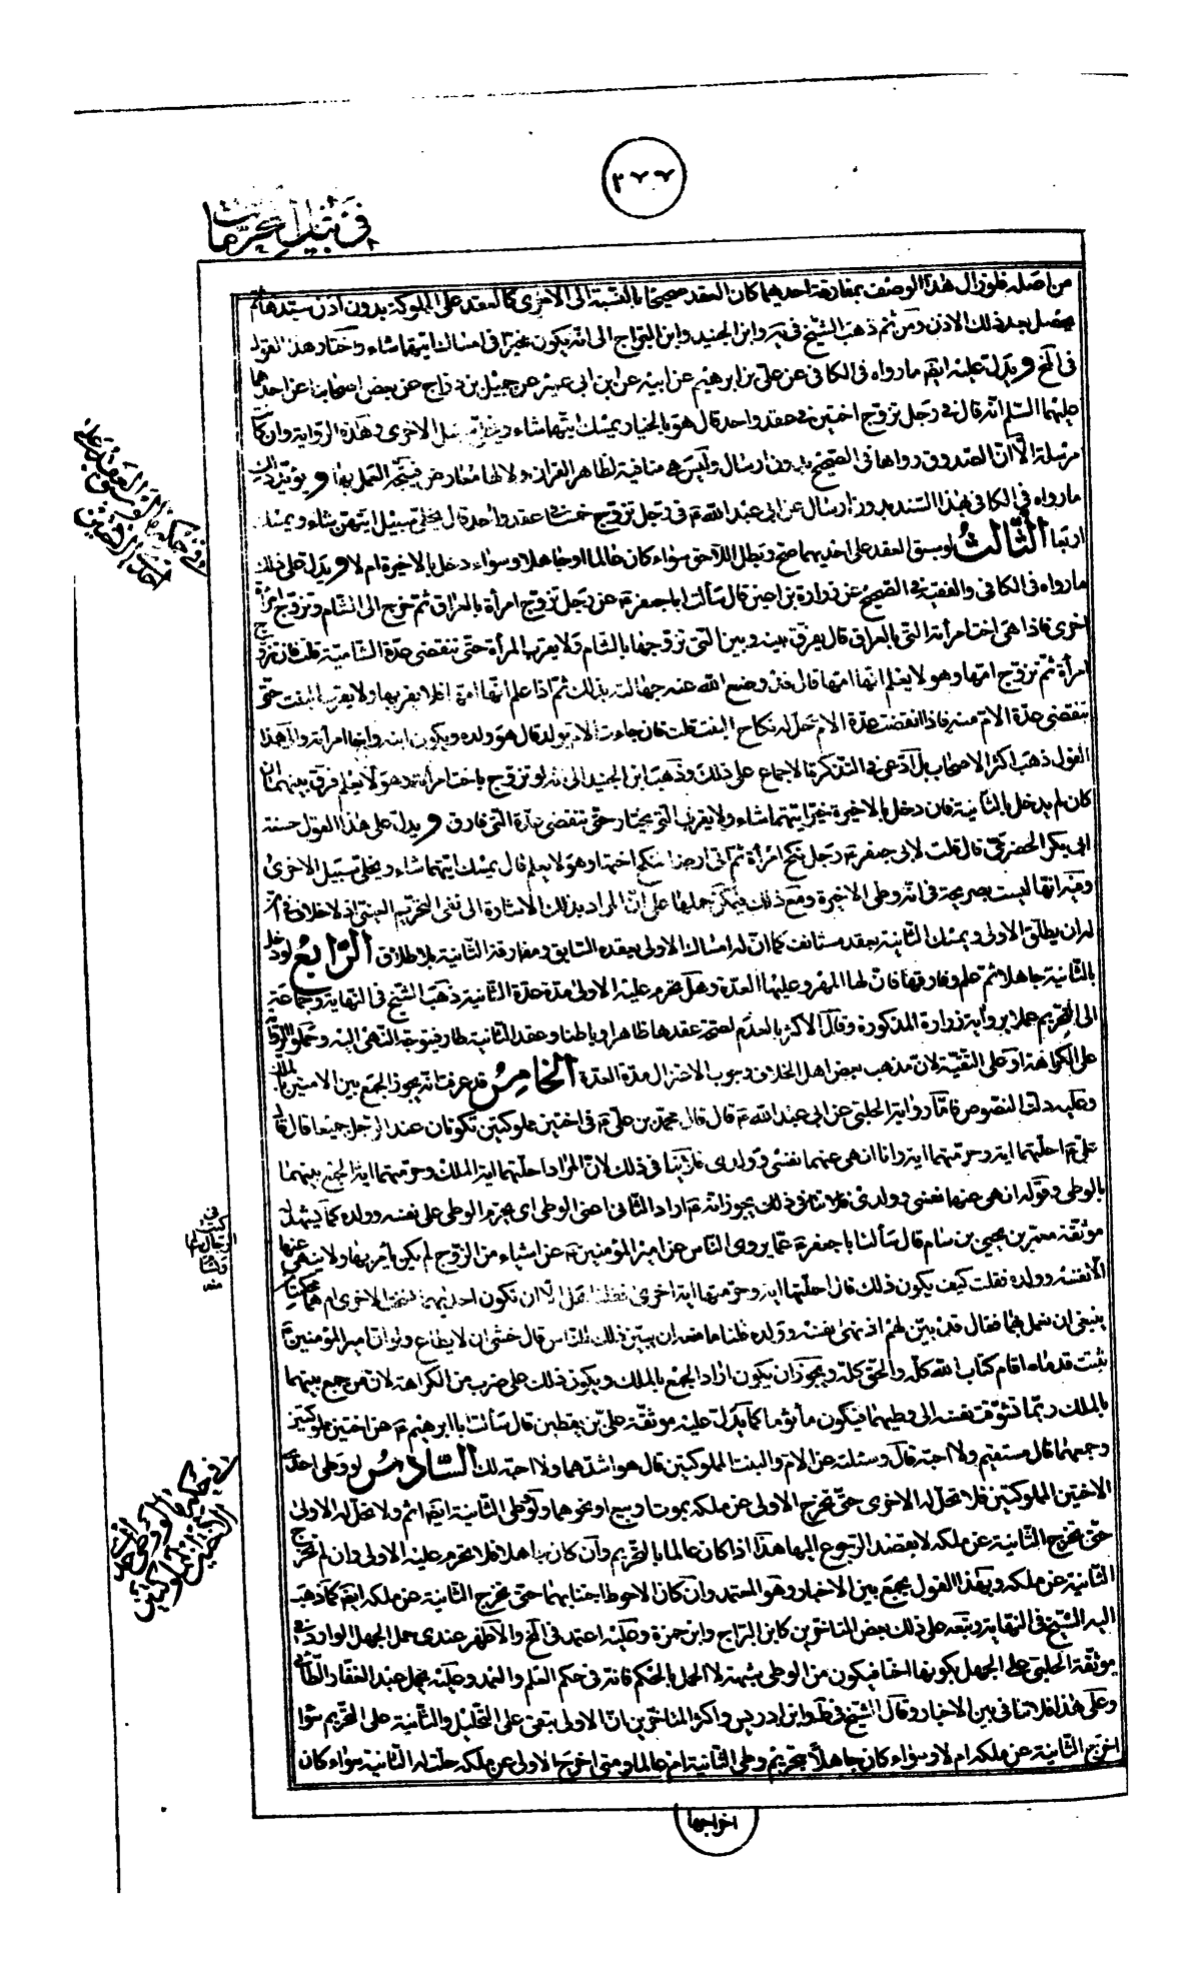 ٢٧٧
في تبيين المحرمات
من اصله فلو زال هذا الوصف بمفارقة احديهما كان العقد صحيحا بالنسبة الى الاخرى كالعقد على المملوكة بدون اذن سيدها ثم
يحصل بعد ذلك الاذن ومن ثم ذهب الشيخ في يه وابن الجنيد وابن البراج الى انه يكون مخيرا في امساك ايتهما شاء واختار هذا القول
في لخ ويدل عليه ايضا ما رواه في الكافي عن علي بن ابرهيم عن ابيه عن ابن ابي عمير عن جميل بن دراج عن بعض اصحابنا عن احدهما
عليهما السلم انه قال في رجل تزوج اختين في عقد واحد قال هو بالخيار يمسك ايتهما شاء ويخلي سبيل الاخرى وهذه الرواية وان كانت
مرسلة الا ان الصدوق رواها في الصحيح بدون ارسال وليس هي منافية لظاهر القران ولا لها معارض فيتجه العمل بها ويؤيد ذلك
ما رواه في الكافي بهذا السند بدون ارسال عن ابي عبد الله ع في رجل تزوج خمسا في عقد واحد قال يخلي سبيل ايتهن شاء ويمسك
اربعا الثالث لو سبق العقد على احديهما صح وبطل اللاحق سواء كان عالما او جاهلا وسواء دخل بالاخيرة ام لا ويدل على ذلك
ما رواه في الكافي والفقيه في الصحيح عن زرارة بن اعين قال سألت ابا جعفر ع عن رجل تزوج امرأة بالعراق ثم خرج الى الشام وتزوج امرأة
اخرى فاذا هي اخت امرأته التي بالعراق قال يفرق بينه وبين التي تزوجها بالشام ولا يقرب المرأة حتى تنقضي عدة الشامية قلت فان تزوج
امرأة ثم تزوج امها وهو لا يعلم انها امها قال قد وضع الله عنه جهالته بذلك ثم اذا علم انها امها فلا يقربها ولا يقرب البنت حتى
تنقضي عدة الام منه فاذا انقضت عدة الام حل له نكاح البنت قلت فان جاءت الام بولد قال هو ولده ويكون ابنه واخا امرأته والى هذا
القول ذهب اكثر الاصحاب بل ادعى في التذكرة الاجماع على ذلك وذهب ابن الجنيد الى انه لو تزوج باخت امرأته وهو لا يعلم فرق بينهما ان
كان لم يدخل بالثانية فان دخل بالاخيرة خير ايتهما شاء ولا يقرب التي يختار حتى تنقضي عدة التي فارق ويدل على هذا القول حسنة
ابي بكر الحضرمي قال قلت لابي جعفر ع رجل نكح امرأة ثم اتى ارضا فنكح اختها وهو لا يعلم قال يمسك ايتهما شاء ويخلي سبيل الاخرى
وفيه انها ليست بصريحة في انه وطى الاخيرة ومع ذلك فيمكن حملها على ان المراد بذلك الاشارة الى نفي التحريم العيني اذ لا خلاف في ان
له ان يطلق الاولى ويمسك الثانية بعقد مستانف كما ان له امساك الاولى بعقده السابق ومفارقة الثانية بلا طلاق الرابع لو دخل
بالثانية جاهلا ثم علم وفارقها فان لها المهر وعليها العدة وهل يحرم عليه الاولى مدة عدة الثانية ذهب الشيخ في النهاية وجماعة
الى التحريم عملا برواية زرارة المذكورة وقال الاكثر بالعدم لصحة عقدها ظاهرا وباطنا وعقد الثانية طار فيتوجه النهي اليه وحملوا الرواية
على الكراهة او على التقية لان مذهب بعض اهل الخلاف وجوب الاعتزال مدة العدة الخامس قد عرفت انه يجوز الجمع بين الامتين بالملك
وعليه دلت النصوص فاما رواية الحلبي عن ابي عبد الله ع قال قال محمد بن علي ع في اختين مملوكتين تكونان عند الرجل جميعا قال قال
علي ع احلتهما اية وحرمتهما اية وانا انهى عنهما نفسي وولدي فلا ينافي ذلك لان المراد احلتهما اية الملك وحرمتهما اية الجمع بينهما
بالوطي وقوله ان هي عنها نفسي وولدي فلا ينافي ذلك يجوز انه ع اراد الثاني اعني الوطي اي يحرم الوطي على نفسه وولده كما يشهد له
موثقة معمر بن يحيى بن سام قال سألنا ابا جعفر ع عما يروى الناس عن امير المؤمنين ع عن اشياء من الفروج لم يكن يأمر بها ولا ينهى عنها
الا نفسه وولده فقلت كيف يكون ذلك قال احلتها اية وحرمتها اية اخرى فقلنا هل الا ان تكون احديهما نسخت الاخرى ام هما محكمتان
ينبغي ان يعمل بهما فقال قد بين لهم اذ نهى نفسه وولده قلنا ما منعه ان يبين ذلك للناس قال خشي ان لا يطاع ولو ان امير المؤمنين ع
ثبتت قدماه اقام كتاب الله كله والحق كله ويجوز ان يكون اراد الجمع بالملك ويكون ذلك على ضرب من الكراهة لان من جمع بينهما
بالملك ربما تشوقت نفسه الى وطيهما فيكون مأثوما كما يدل عليه موثقة علي بن يقطين قال سألت ابا ابرهيم ع عن اختين مملوكتين
وجمعهما قال مستقيم ولا احبه قال وسئلته عن الام والبنت المملوكتين قال هو اشدهما ولا احبه لك السادس لو وطى احدى
الاختين المملوكتين فلا تحل له الاخرى حتى تخرج الاولى عن ملكه بموت او بيع او نحوهما ولو وطى الثانية ايضا اثم ولا تحل له الاولى
حتى تخرج الثانية عن ملكه لا بقصد الرجوع اليها هذا اذا كان عالما بالتحريم وان كان جاهلا فلا تحرم عليه الاولى وان لم تخرج
الثانية عن ملكه وبهذا القول يجمع بين الاخبار وهو المعتمد وان كان الاحوط اجتنابهما حتى تخرج الثانية عن ملكه ايضا كما ذهب
اليه الشيخ في النهاية وتبعه على ذلك بعض المتاخرين كابن البراج وابن حمزة وعليه اعتمد في لخ والاظهر عندي حمل الجهل الوارد في
موثقة الحلبي على الجهل بكونها اختا فيكون من الوطي بشبهة لا الجهل بالحكم فانه في حكم العلم والعمد وعليه يحمل خبر عبد الغفار الطائي
وعلى هذا فلا تنافي بين الاخبار وقال الشيخ في ط وابن ادريس واكثر المتاخرين بان الاولى تبقى على التحليل والثانية على التحريم سواء
اخرج الثانية عن ملكه ام لا وسواء كان جاهلا بتحريم وطي الثانية ام عالما ومتى اخرج الاولى عن ملكه حلت له الثانية سواء كان
اخراجها
في حكم ما لو سبق العقد على احد الاختين
في حكم ما لو وطى احدى الاختين المملوكتين